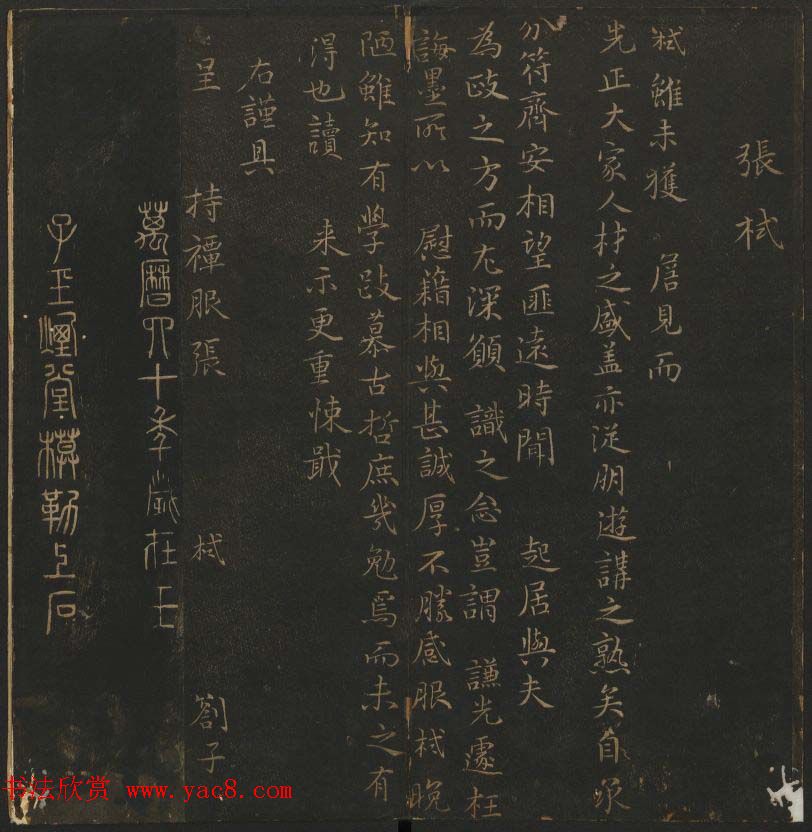 張栻
栻雖未獲 詹見而
先正大家人材之盛盖亦從朋遊講之熟矣自承
分符齊安相望匪遠時聞 起居與夫
為政之方而尤深願 識之念豈謂 謙光遽枉
誨墨所以 慰藉相與甚誠厚不勝感服栻晚
陋雖知有學跂慕古哲庶幾勉焉而未之有
得也讀 来示更重悚戢
右謹具
呈 持禫服張 栻 劄子
萬曆四十年歲在壬
子玉煙堂摹勒上石
书法欣赏 www.yac8.com